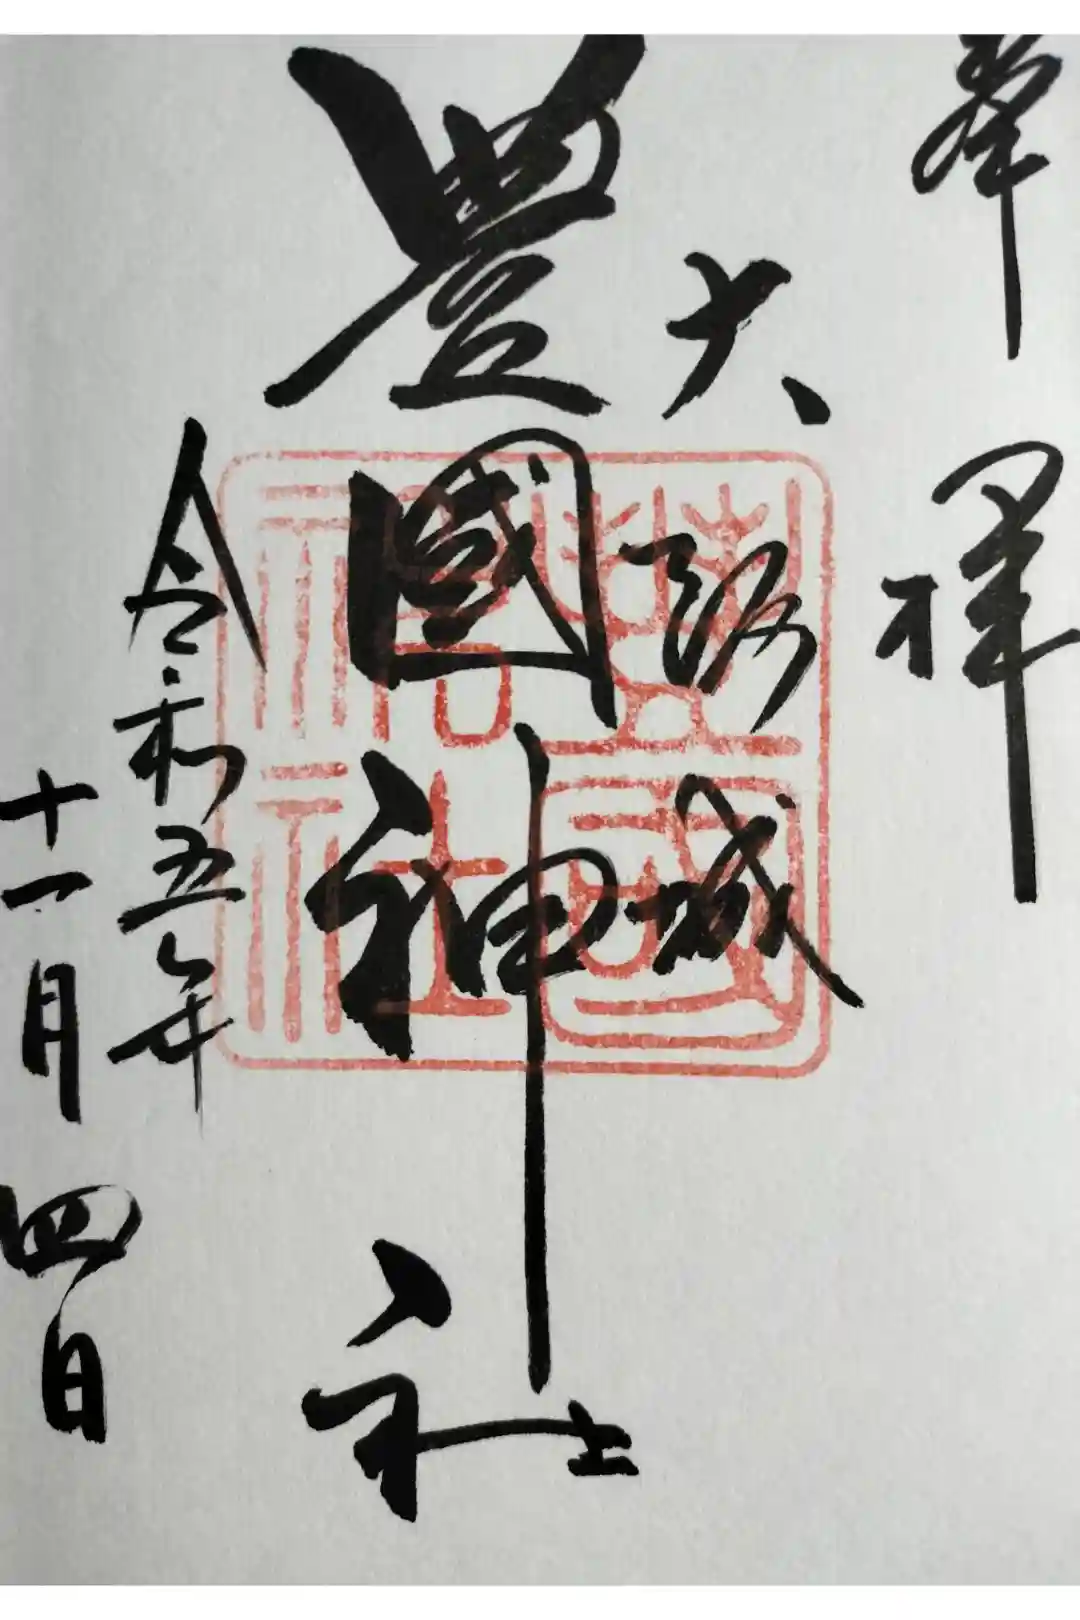 奉拝
大阪城
豊國神社
令和五年
十一月四日
豊國神社